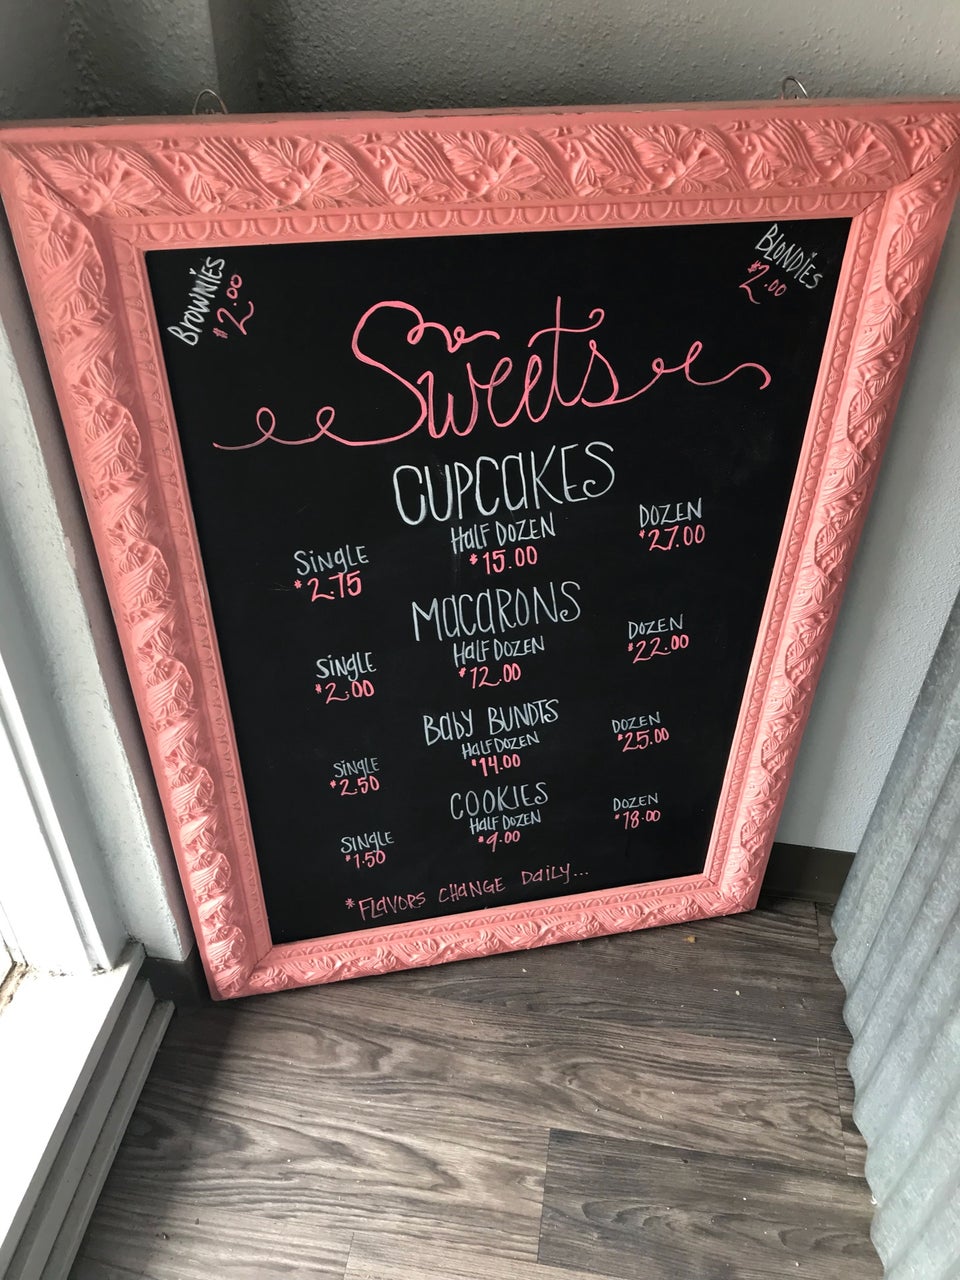 Brownies
$2.00
Blondies
$2.00
Sweets
CUPCAKES
Single
$2.75
Half Dozen
$15.00
Dozen
$27.00
Macarons
Single
$2.00
Half Dozen
$12.00
Dozen
$22.00
Baby Bundts
Single
$2.50
Half Dozen
$14.00
Dozen
$25.00
Cookies
Single
$1.50
Half Dozen
$9.00
Dozen
$18.00
*Flavors Change Daily...